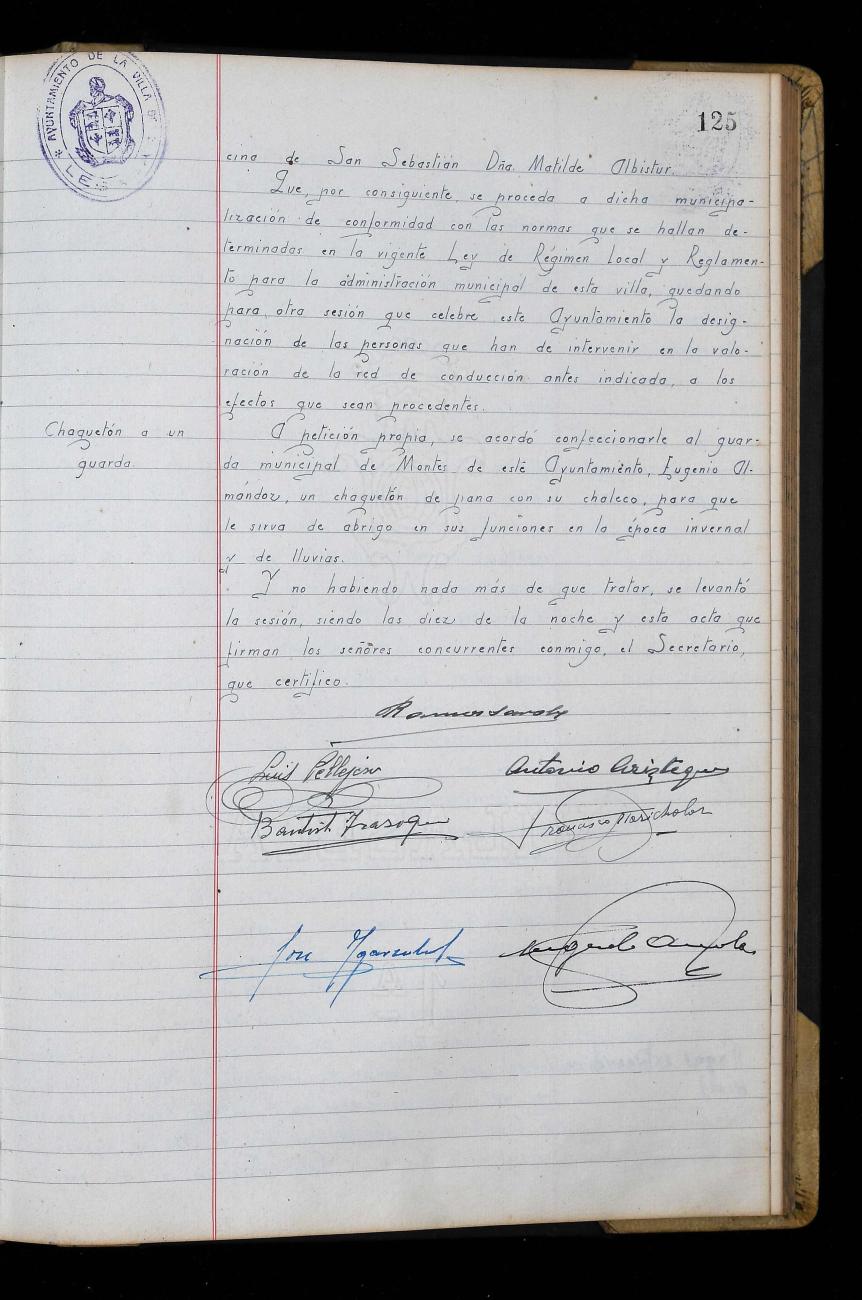 AYUNTAMIENTO DE LA VILLA DE
125
cina de San Sebastián Dña. Matilde Albistur.
Que, por consiguiente, se proceda a dicha municipa-
lización de conformidad con las normas que se hallan de-
terminadas en la vigente Ley de Régimen Local y Reglamen-
to para la administración municipal de esta villa, quedando
para otra sesión que celebre este Ayuntamiento la desig-
nación de las personas que han de intervenir en la valo-
ración de la red de conducción antes indicada, a los
efectos que sean procedentes.
Chaquetón a un
guarda.
A petición propia, se acordó confeccionarle al guar-
da municipal de Montes de este Ayuntamiento, Eugenio Al-
mándoz, un chaquetón de pana con su chaleco, para que
le sirva de abrigo en sus funciones en la época invernal
y de lluvias.
Y no habiendo nada más de que tratar, se levantó
la sesión, siendo las diez de la noche y esta acta que
firman los señores concurrentes conmigo, el Secretario,
que certifico.
Luis Pellejero
Antonio Ariztegui
José